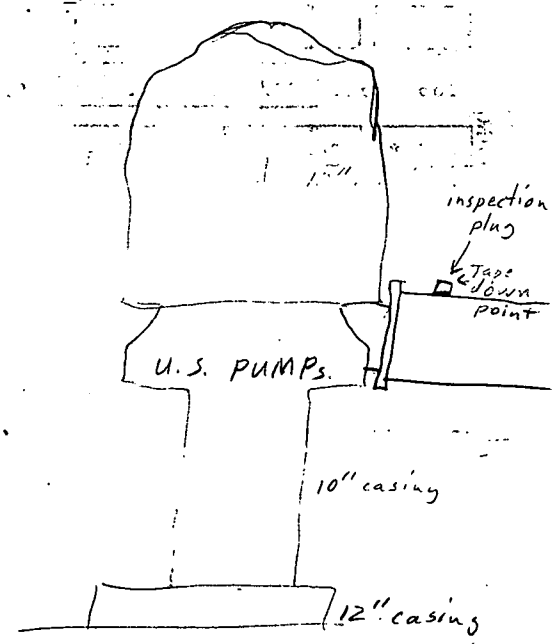 inspection
plug
Tape
down
point
U.S. PUMPs.
10" casing
12" casing